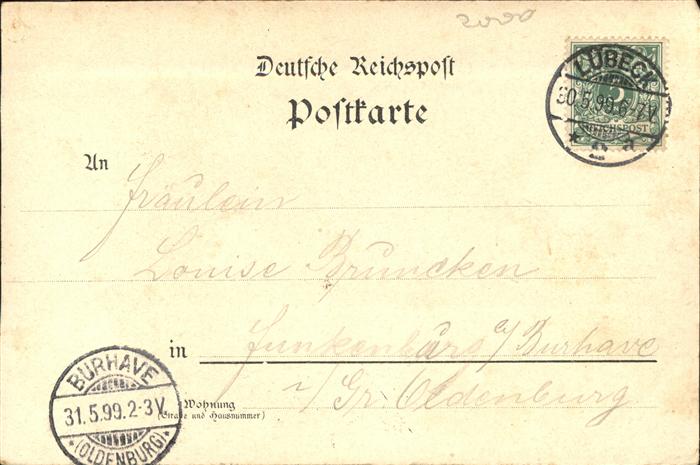 2000
Deutsche Reichspost
Postkarte
LÜBECK
30.5.99.6-7V
REICHSPOST
An
Fräulein
Louise Bruncken
in Funkenburg b/Burhave
i/Gr. Oldenburg
Wohnung
(Straße und Hausnummer)
BURHAVE
31.5.99.2-3V
(OLDENBURG)